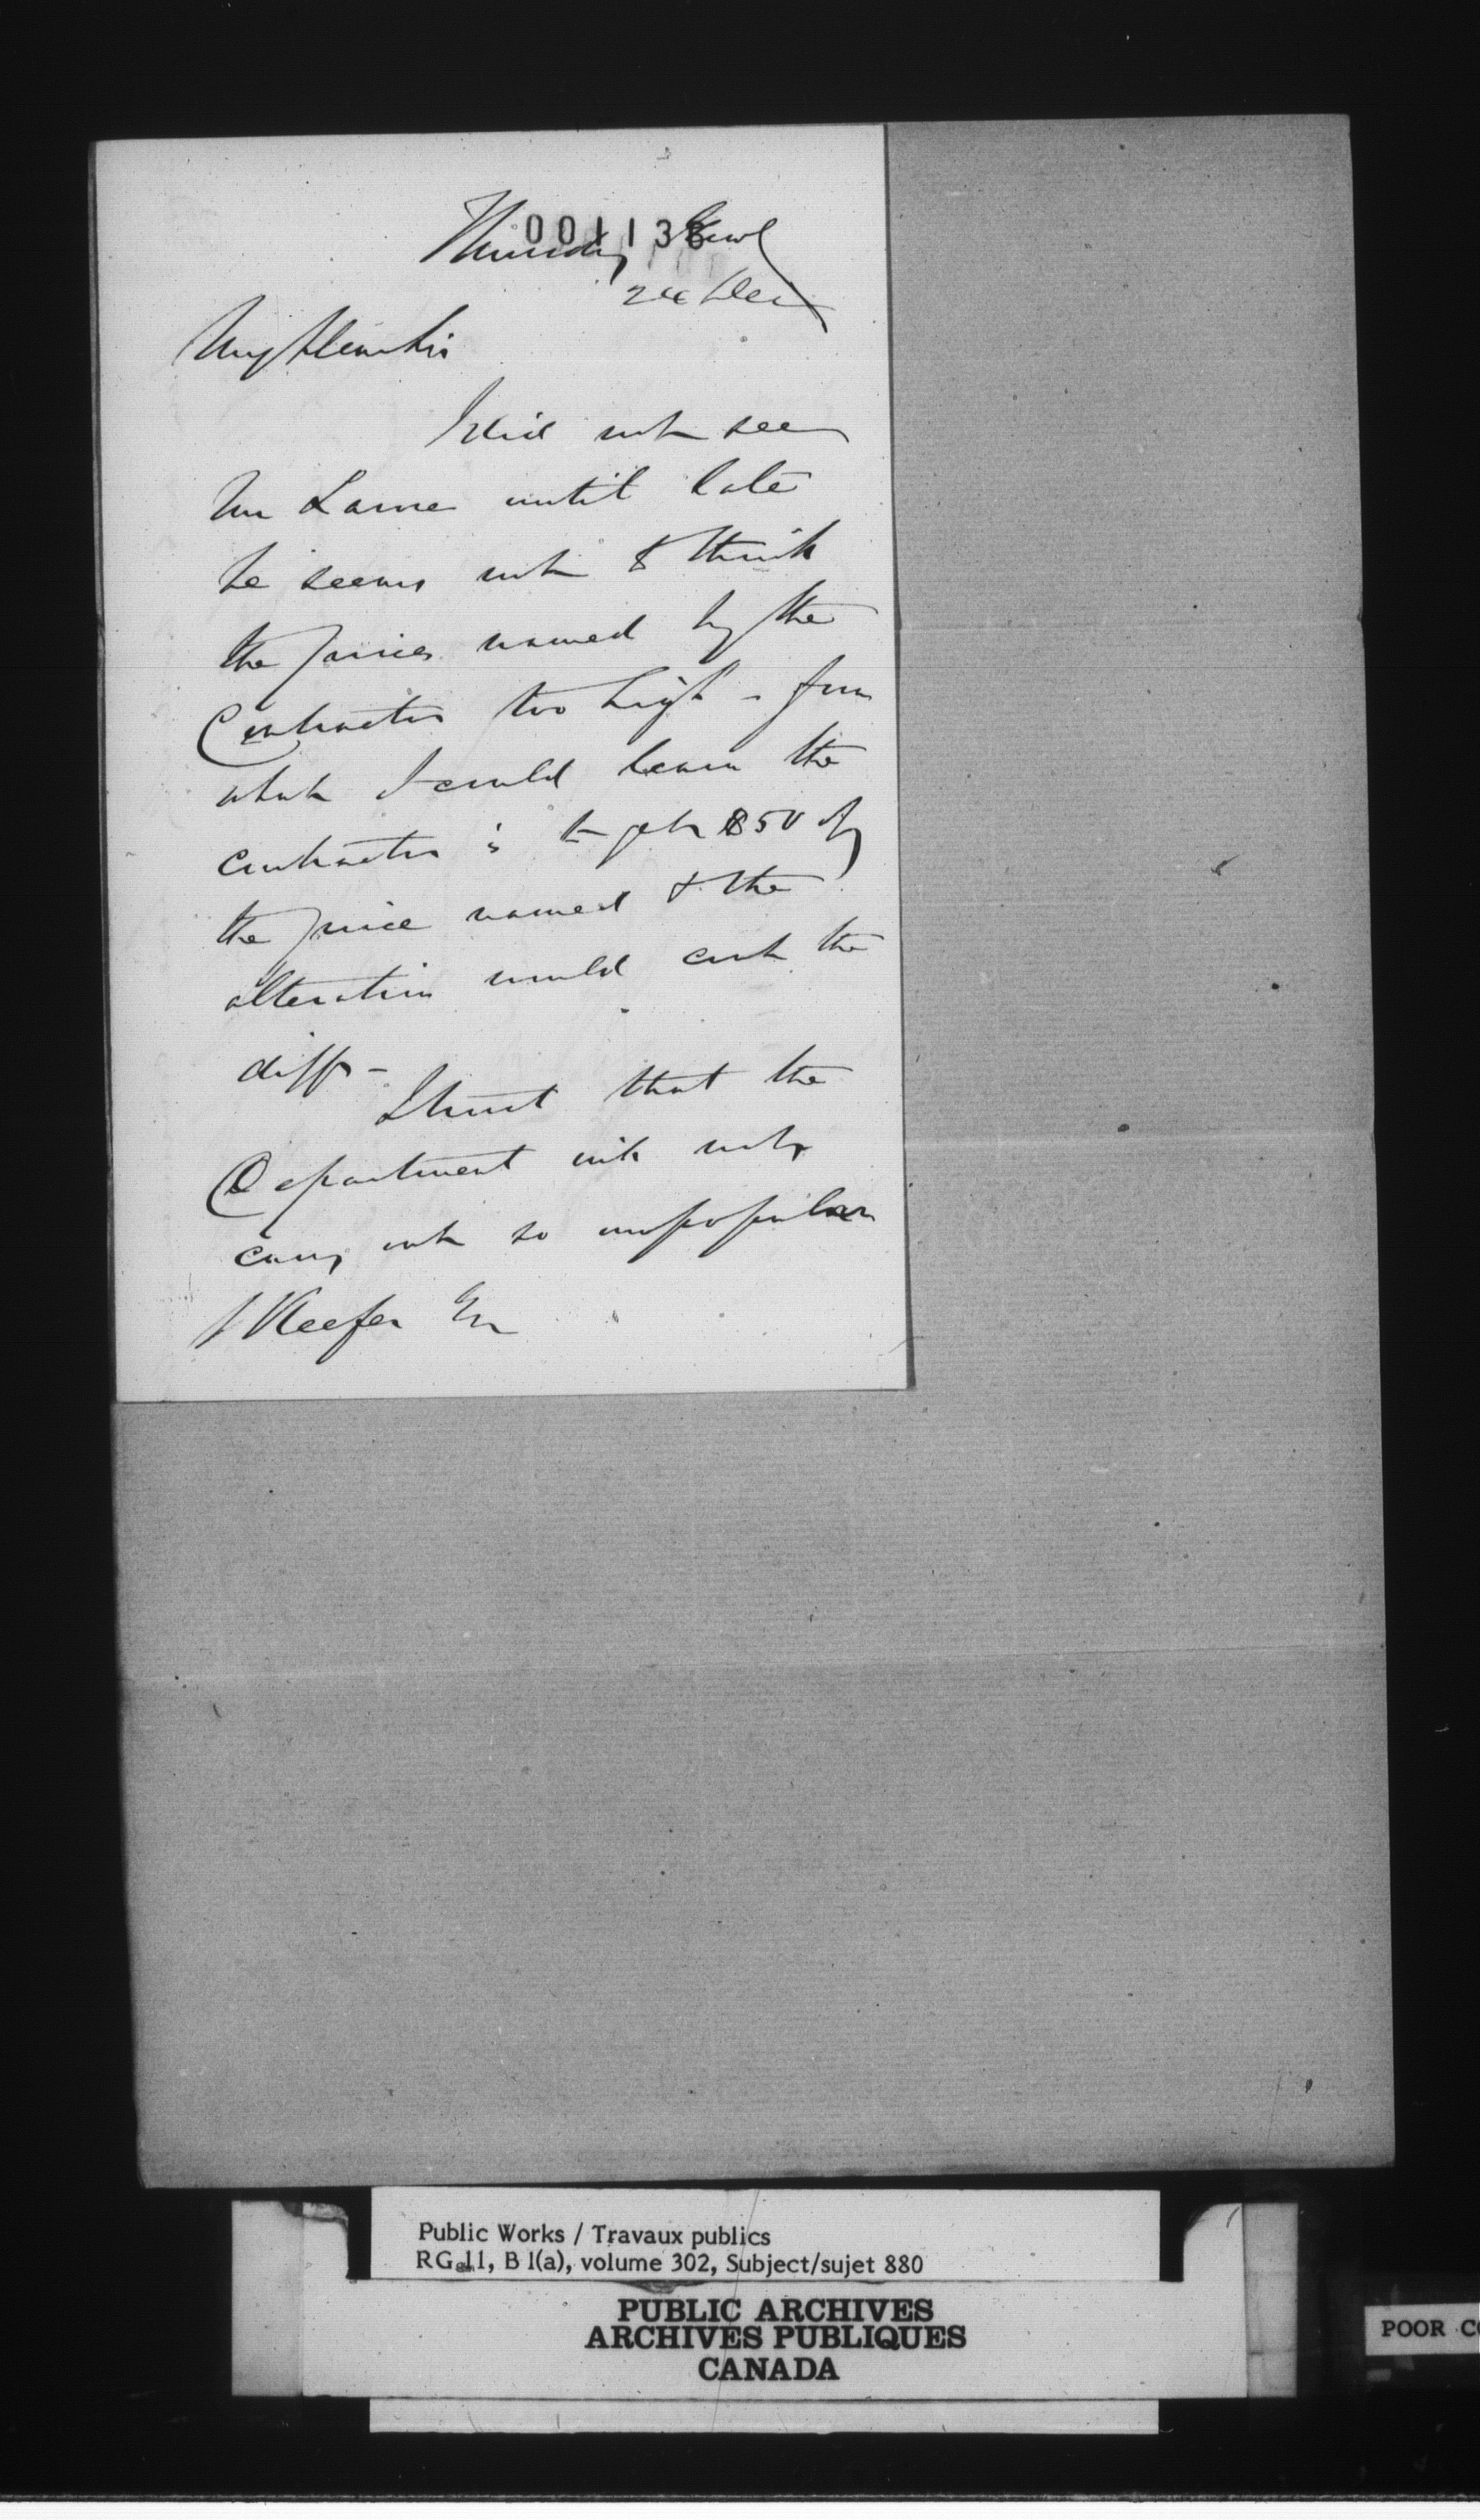 001138
Thursday
24 Dec
My Dear Sir
I did not see
Mr Lane until late
he seems not to think
the prices named by the
Contractor too high - from
what I could learn the
contractor is to get 850 of
the price named & the
alteration would cost the
diff -
I trust that the
Department will not
carry out so unpopular
Keefer Esq
Public Works / Travaux publics
RG 11, B 1(a), volume 302, Subject/sujet 880
PUBLIC ARCHIVES
ARCHIVES PUBLIQUES
CANADA
POOR